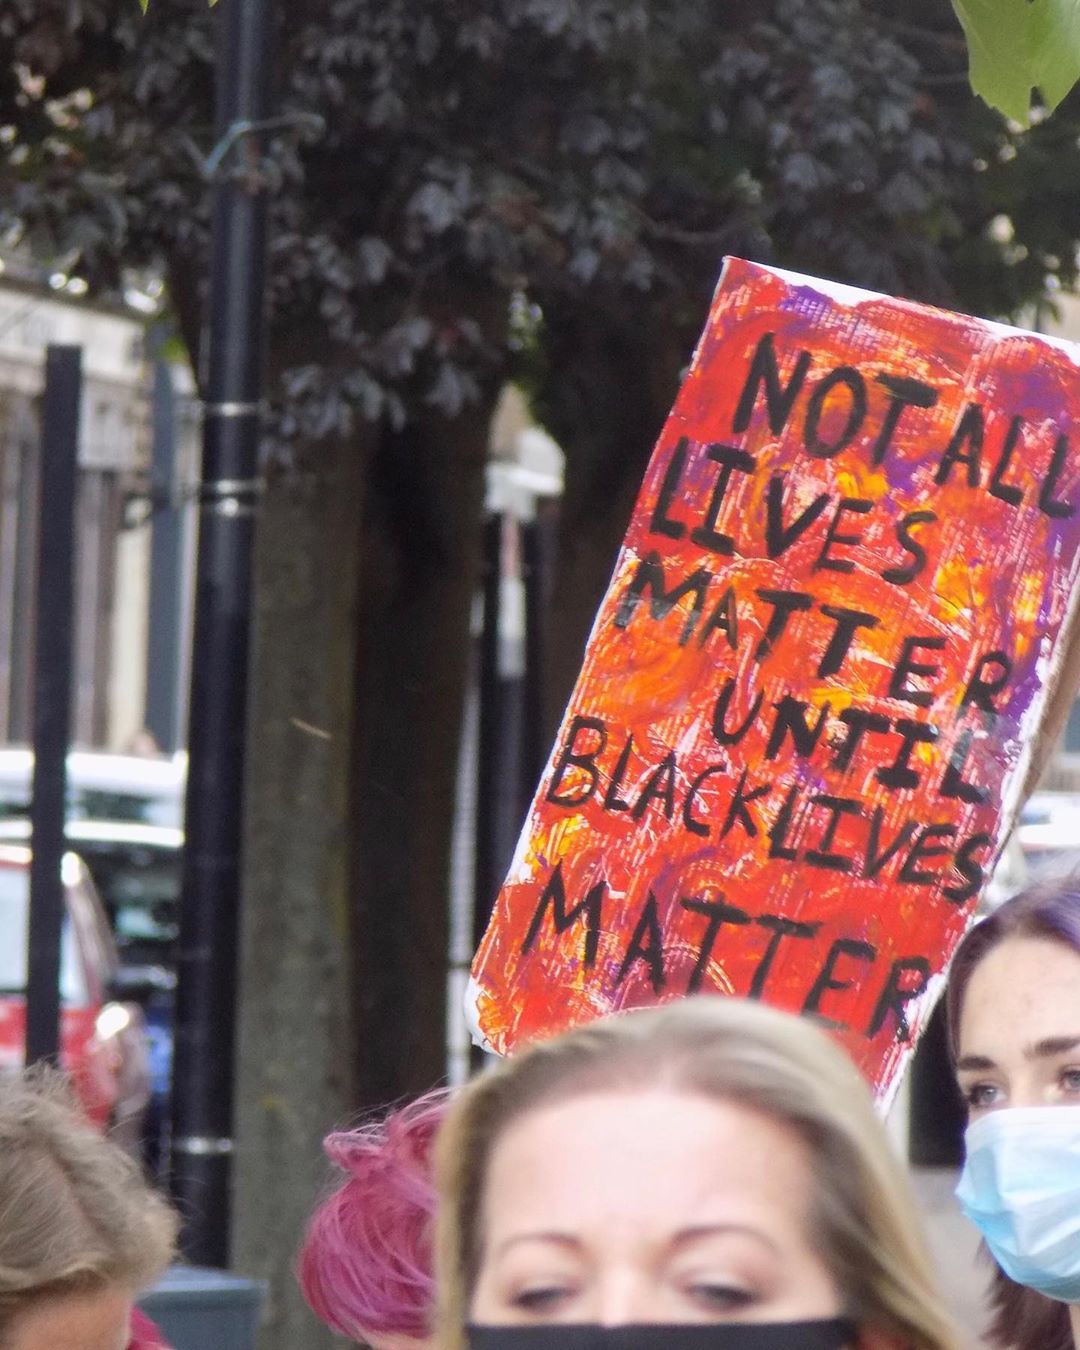 NOT ALL
LIVES
MATTER
UNTIL
BLACK LIVES
MATTER